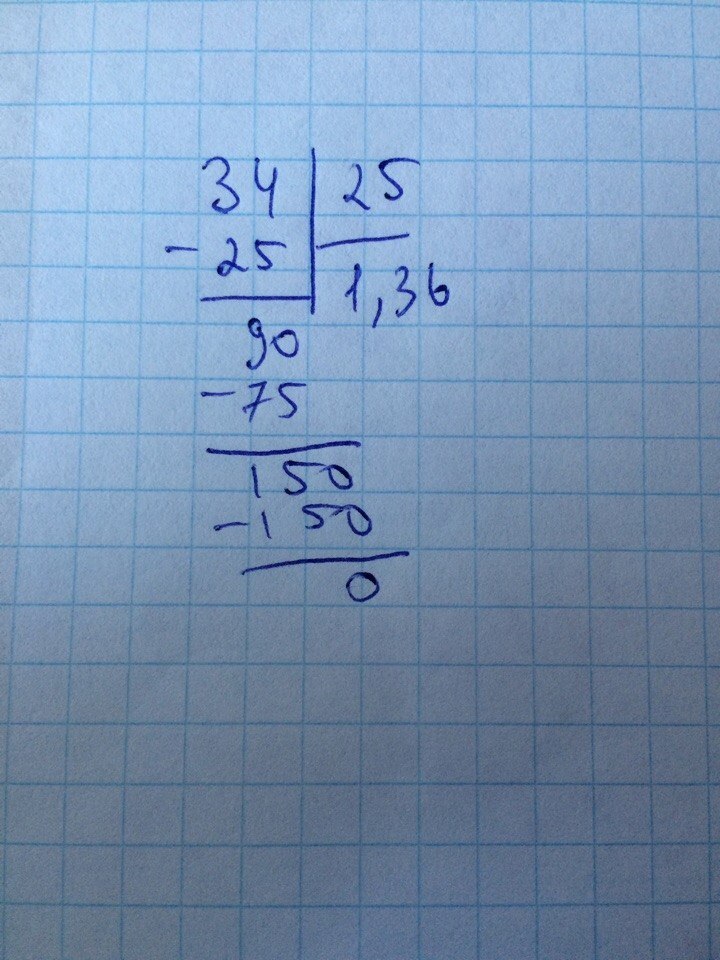 34 | 25
- 25 | 1,36
90
- 75
150
- 150
0